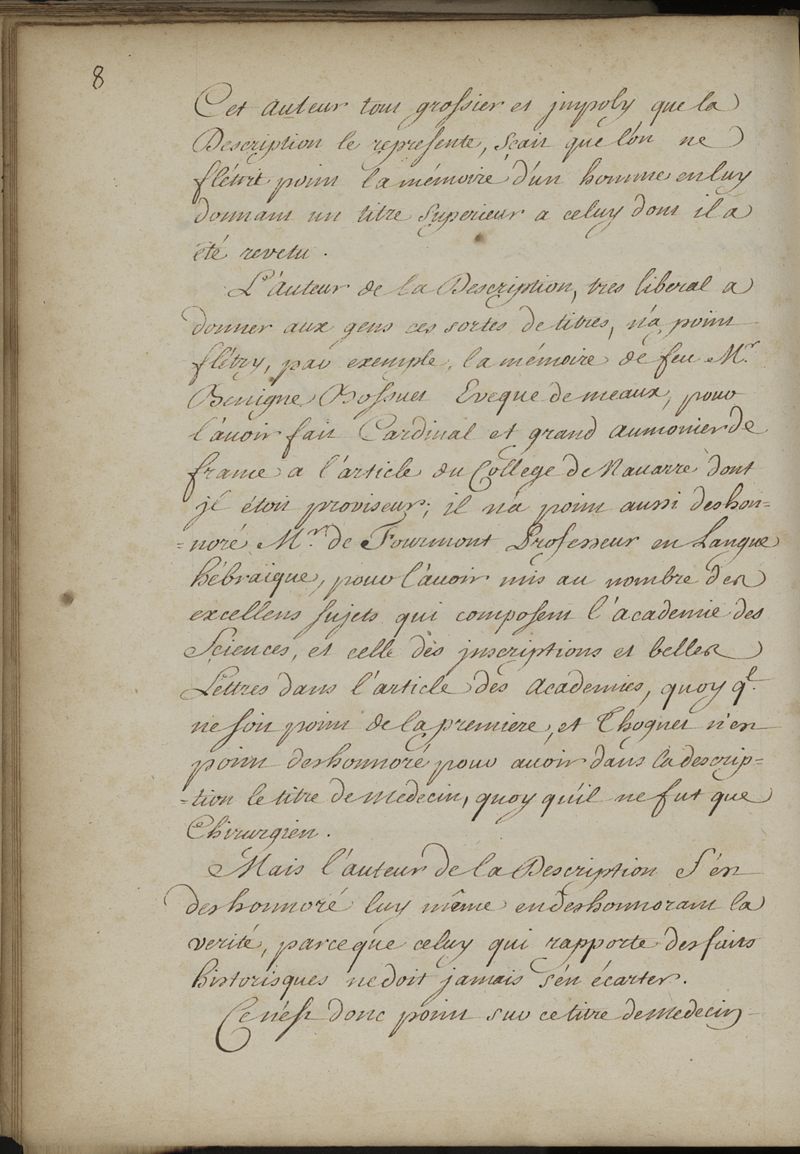 8
Cet Auteur tout grossier et jmpoly que la
Description le represente, Scait que l'on ne
flétrit point la mémoire d'un homme en luy
donnant un titre Superieur a celuy dont il a
été revetu.
L'Auteur de la Description, tres liberal a
donner aux gens ces sortes de titres, n'a point
flétry, par exemple, la mémoire de feu Mr.
Benigne Bossuet Eveque de meaux, pour
l'avoir fait Cardinal et grand aumonier de
france a l'article du College de Navarre dont
jl étoit proviseur; il n'a point aussi deshon=
=noré Mr. de Fourmont Professeur en Langue
hébraique, pour l'avoir mis au nombre des
excellens sujets qui composent l'academie des
Sciences, et celle des jnscriptions et belles
Lettres dans l'article des Academies, quoy ql.
ne soit point de la premiere, et Thognet n'en
point deshonnoré pour avoir dans la descrip=
=tion le titre de Medecin, quoy qu'il ne fut que
Chirurgien.
Mais l'auteur de la Description s'en
deshonnoré luy même en deshonnorant la
verité, parce que celuy qui rapporte des faits
historisques ne doit jamais s'en écarter.
Ce n'est donc point sur ce titre de medecin